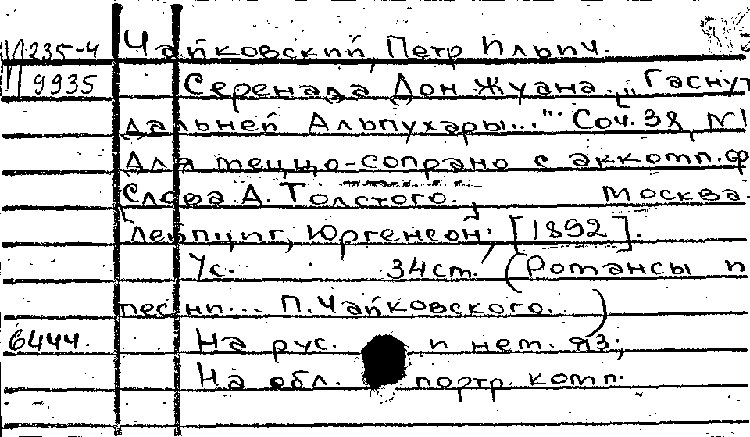 П 235-4 Чайковский, Петр Ильич.
П 9935 Серенада Дон Жуана. „Гаснут
дальней Альпухары..." Соч. 38, №1
Для меццо-сопрано с аккомп. ф
Слова А. Толстого. Москва.
Лейпциг, Юргенсон, [1892].
7с. 34 cm. (Романсы и
песни... П. Чайковского.)
6444. На рус. и нем. яз;
На обл. портр. комп.